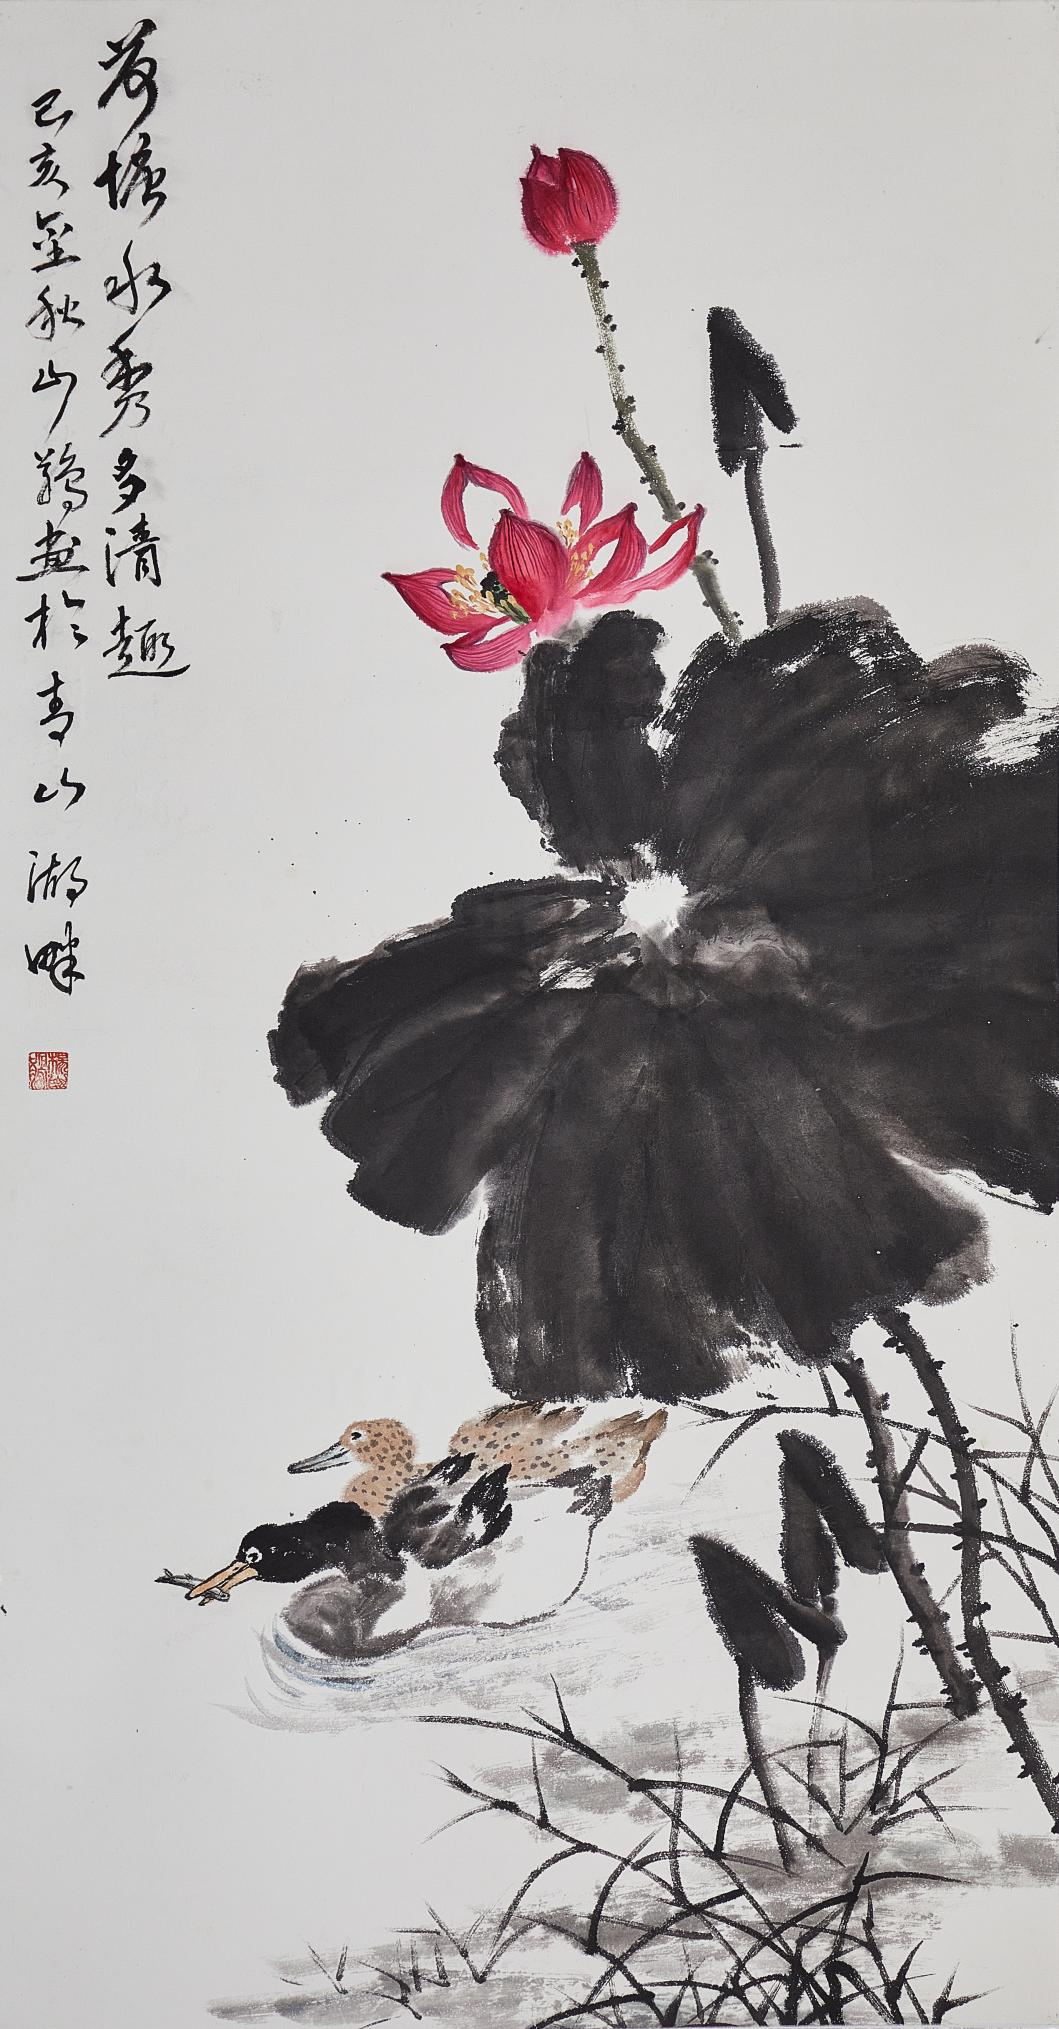 荷塘水秀多清趣
己亥金秋山鹅画於青山湖畔